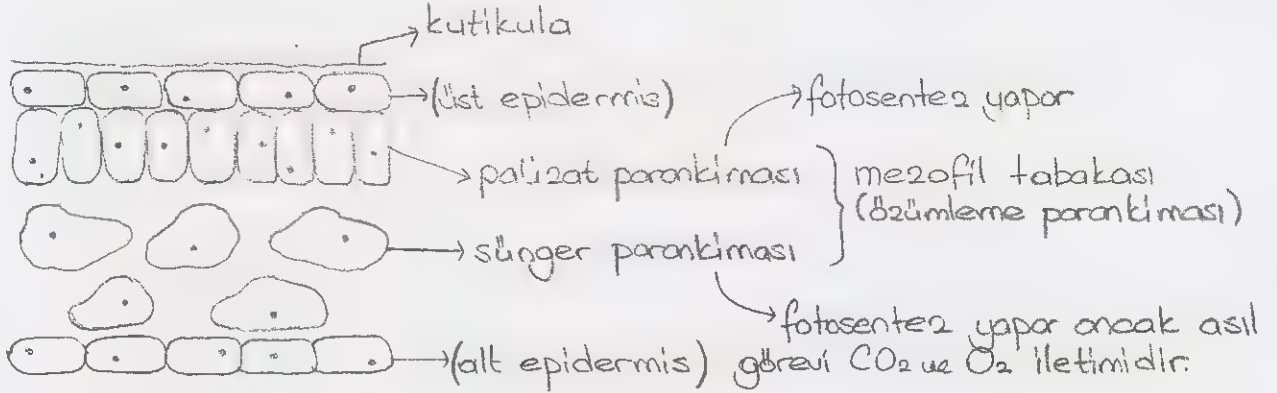 kutikula
(üst epidermis)
fotosentez yapar
palizat parankiması
mezofil tabakası
(özümleme parankiması)
sünger parankiması
fotosentez yapar ancak asıl
(alt epidermis)
görevi CO₂ ve O₂ iletimidir.